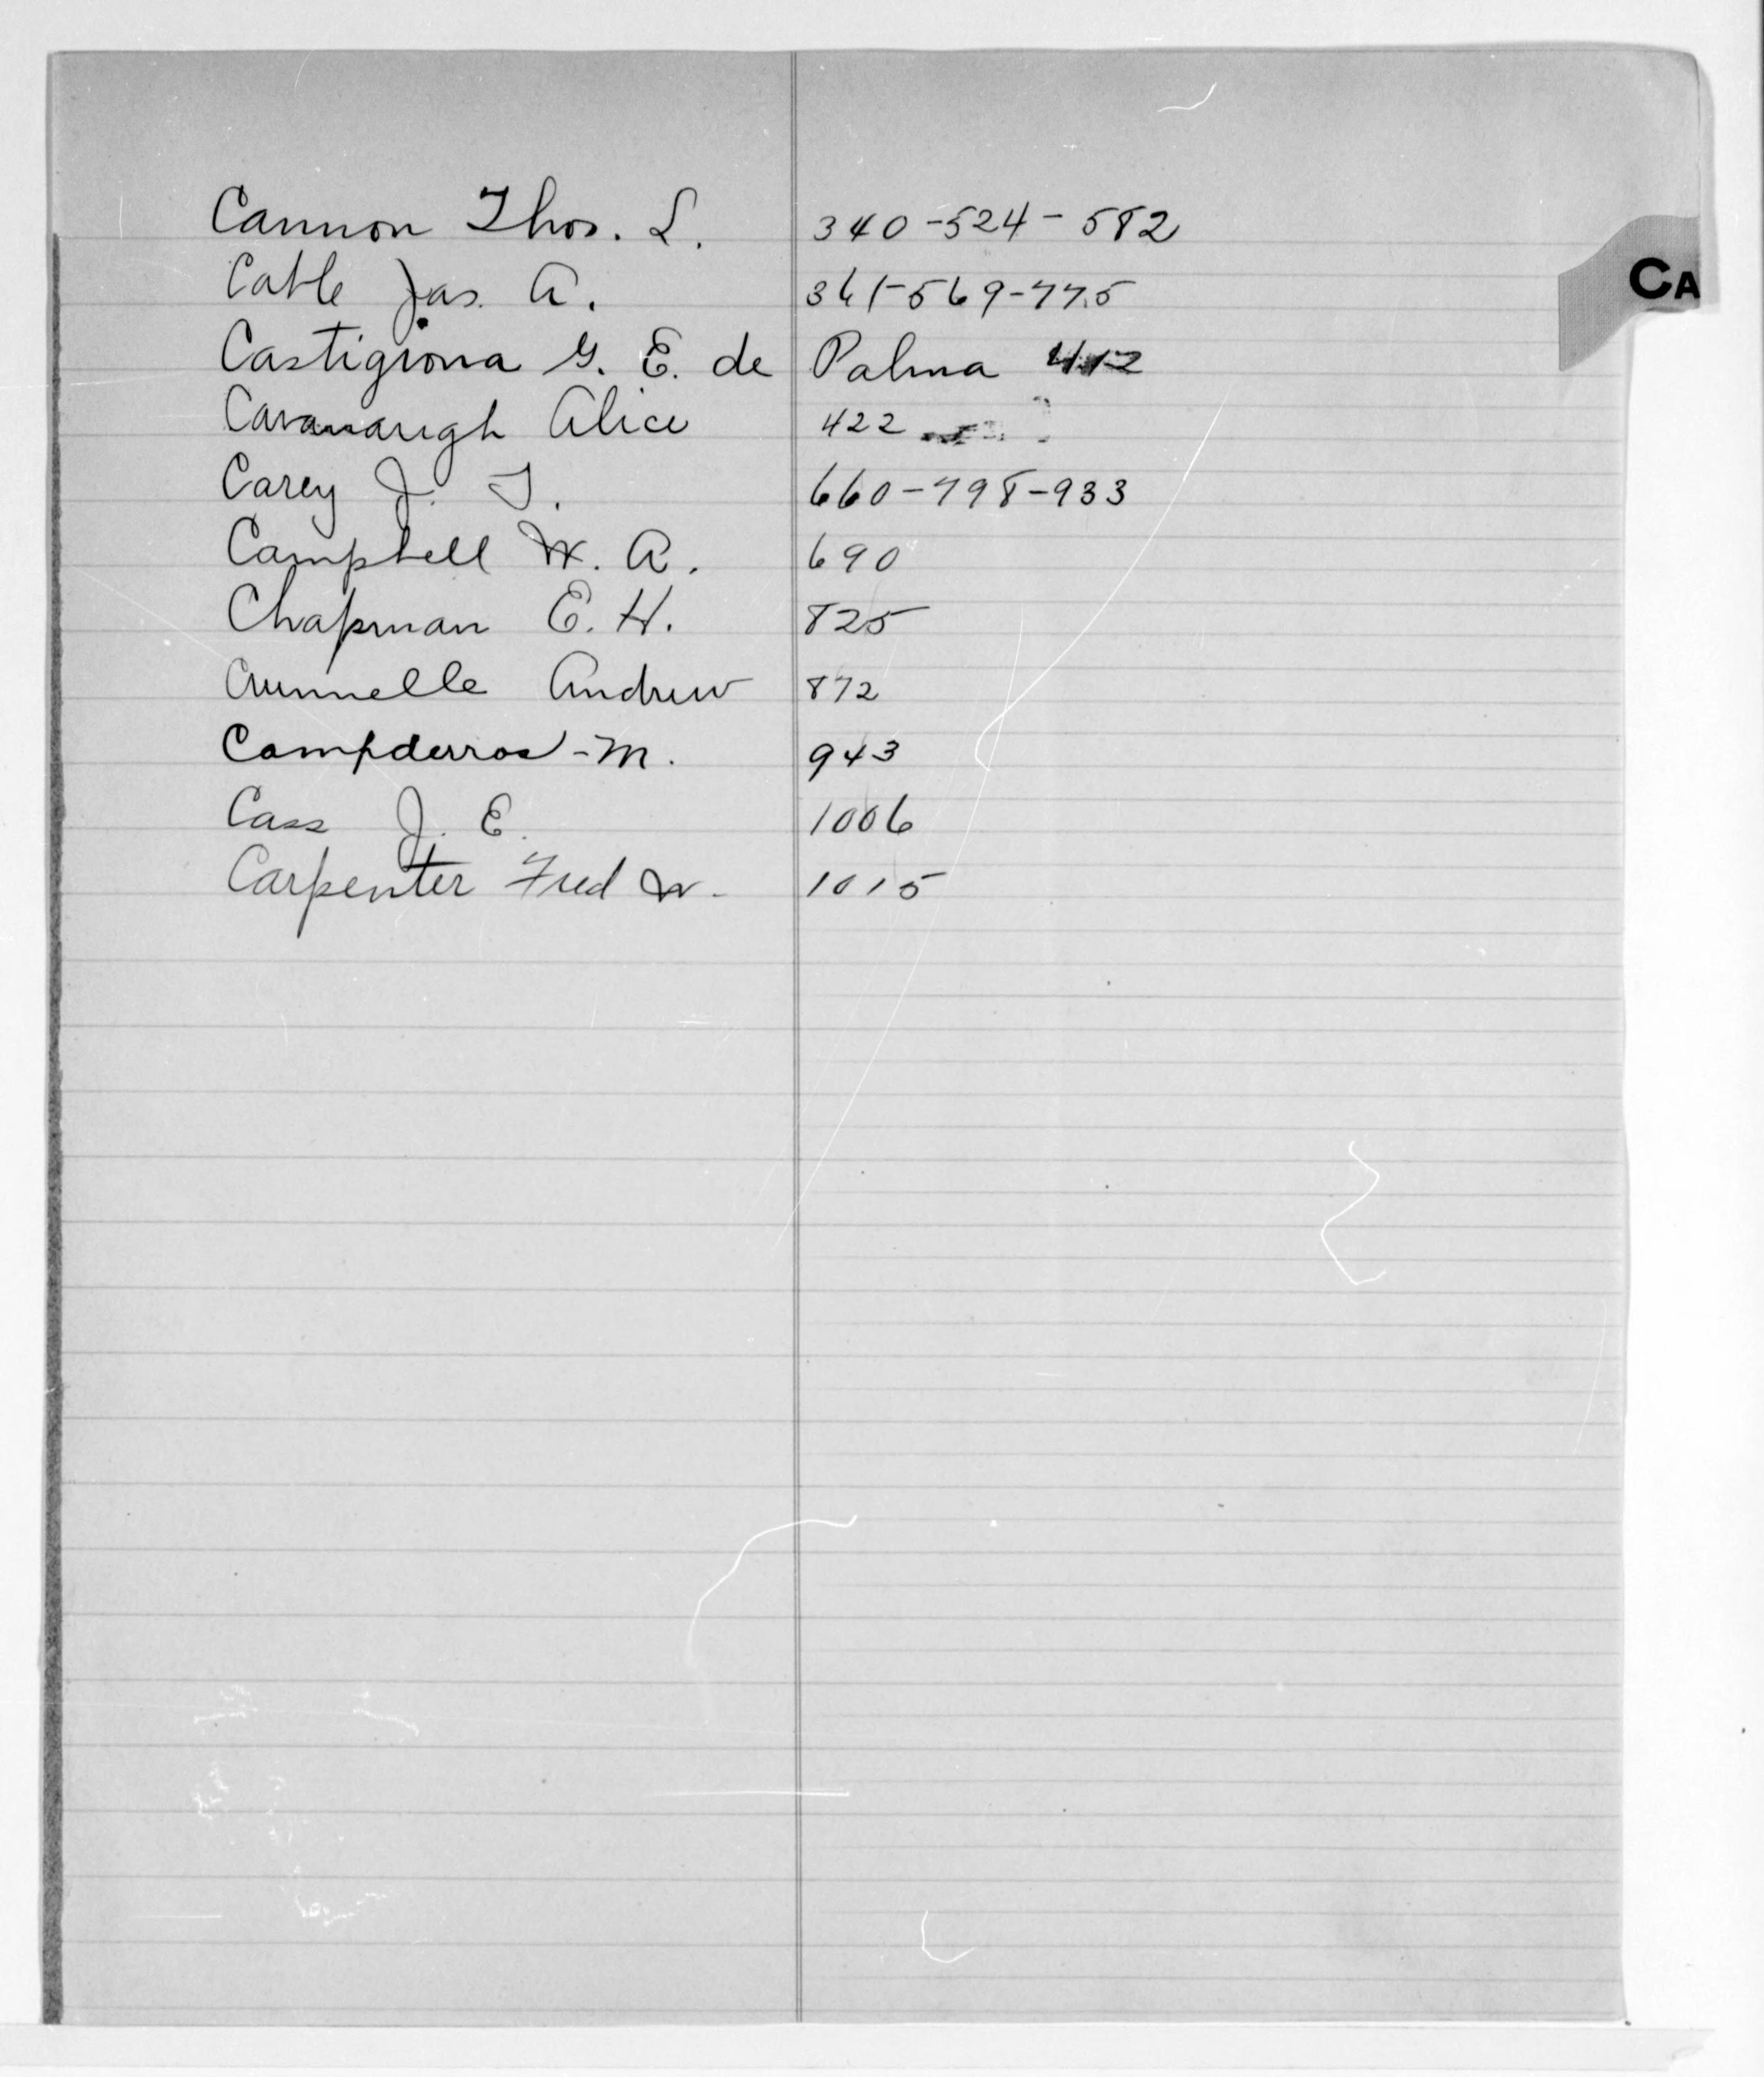 Cannon Thos. L. 340-524-582
CA
Cable Jas. A. 361-569-775
Castigiona G. E. de Palma 412
Cavanaugh Alice 422
Carey J. T. 660-798-933
Campbell W. A. 690
Chapman E. H. 825
Andrew 872
Campderros-M. 943
Cass J. E. 1006
Carpenter Fred W. 1015